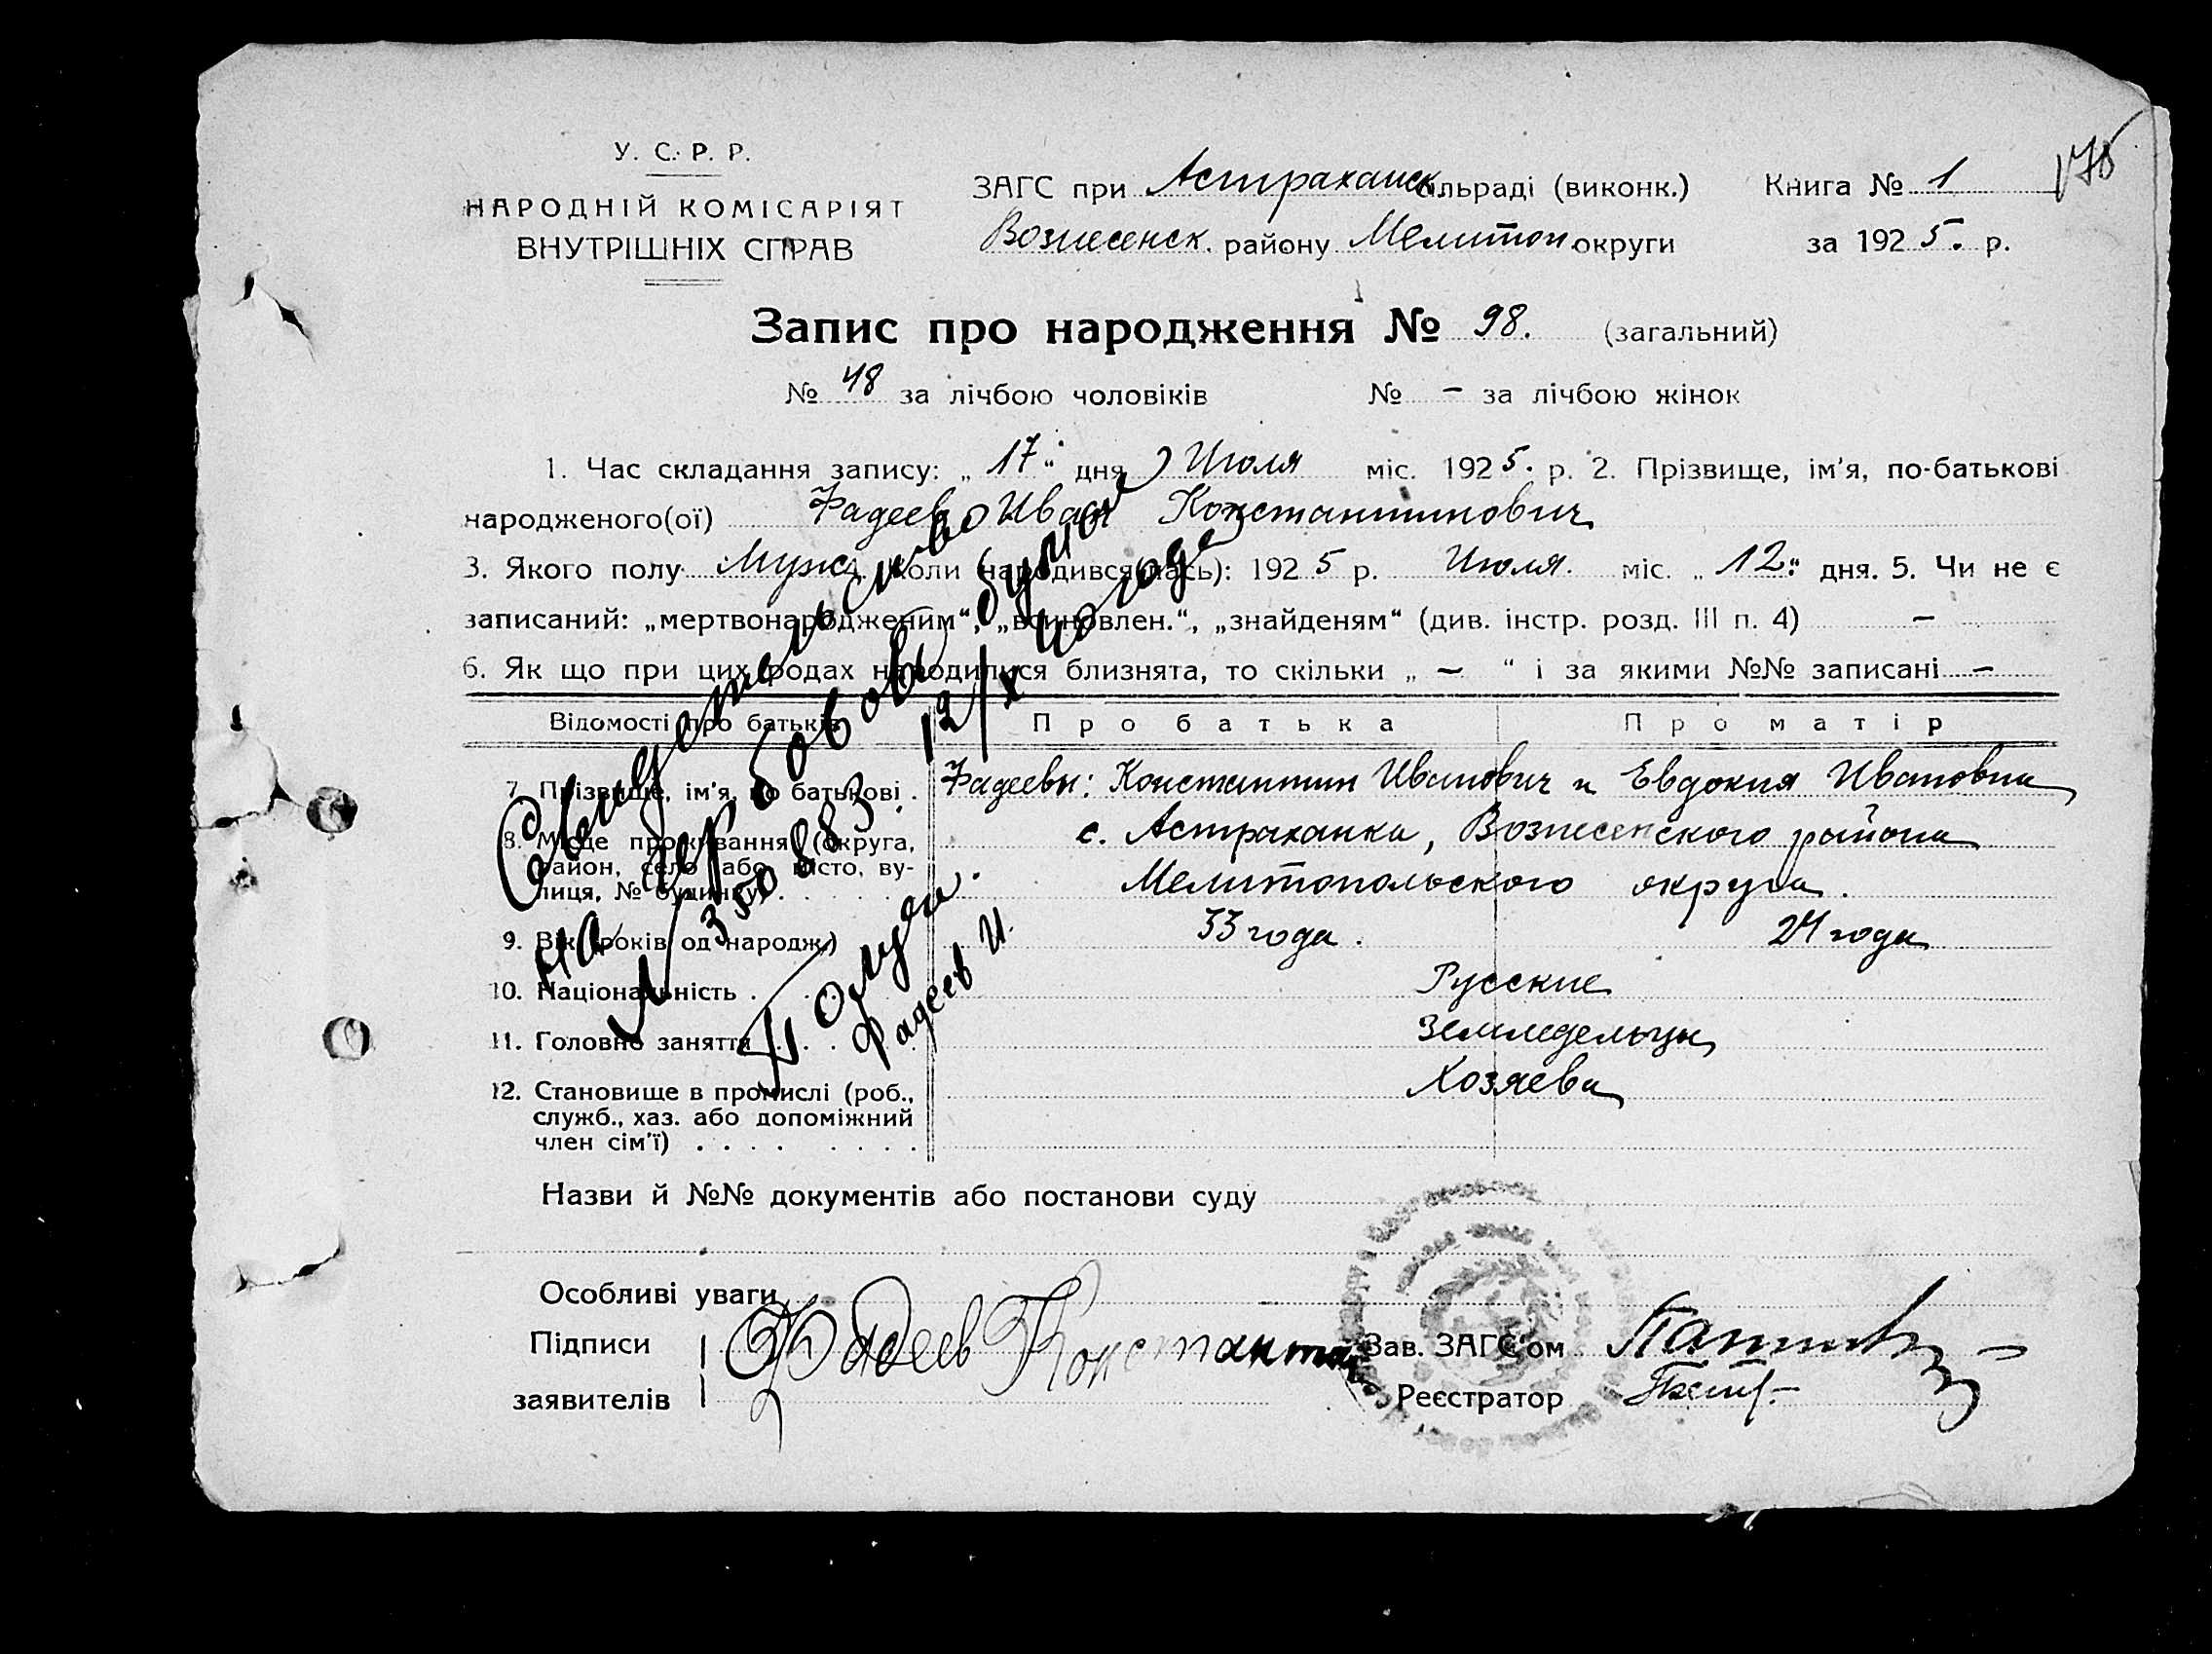 У. С. Р. Р.
НАРОДНІЙ КОМІСАРІЯТ
ВНУТРІШНІХ СПРАВ
ЗАГС при Астраханск. сільраді (виконк.)
Вознесенск. району Мелитоп. округи
Книга № 1
за 1925. р.
Запис про народження № 98. (загальний)
№ 48 за лічбою чоловіків № – за лічбою жінок
1. Час складання запису: „17“ дня Июля міс. 1925. р. 2. Прізвище, ім'я, по-батькові
народженого(ої) Фадеев Иван Константинович
3. Якого полу Муж. 4. Коли народився(лась): 1925 р. Июля. міс. „12“ дня. 5. Чи не є
записаний: „мертвонародженим“, „всиновлен.“, „знайденям“ (див. інстр. розд. III п. 4) –
6. Як що при цих родах народилися близнята, то скільки „ – “ і за якими №№ записані –
Відомості про батьків Про батька Про матір
7. Прізвище, ім'я, по батькові . Фадеевы: Константин Иванович и Евдокия Ивановна
8. Місце проживання (округа, с. Астраханка, Вознесенского района
район, село або місто, ву-
лиця, № будинку) Мелитопольского округа.
9. Вік (років од народж.) 33 года. 24 года
10. Національність . Русские
11. Головне заняття Земледельцы
12. Становище в промислі (роб., Хозяева
служб., хаз. або допоміжний
член сім'ї)
Свидетельство
на гербовой бумаге
№ 350883. 12/X 40 года
Получил.
Фадеев И.
Назви й №№ документів або постанови суду
Особливі уваги
Підписи Фадеев Константин Зав. ЗАГС'ом
заявителів Реєстратор